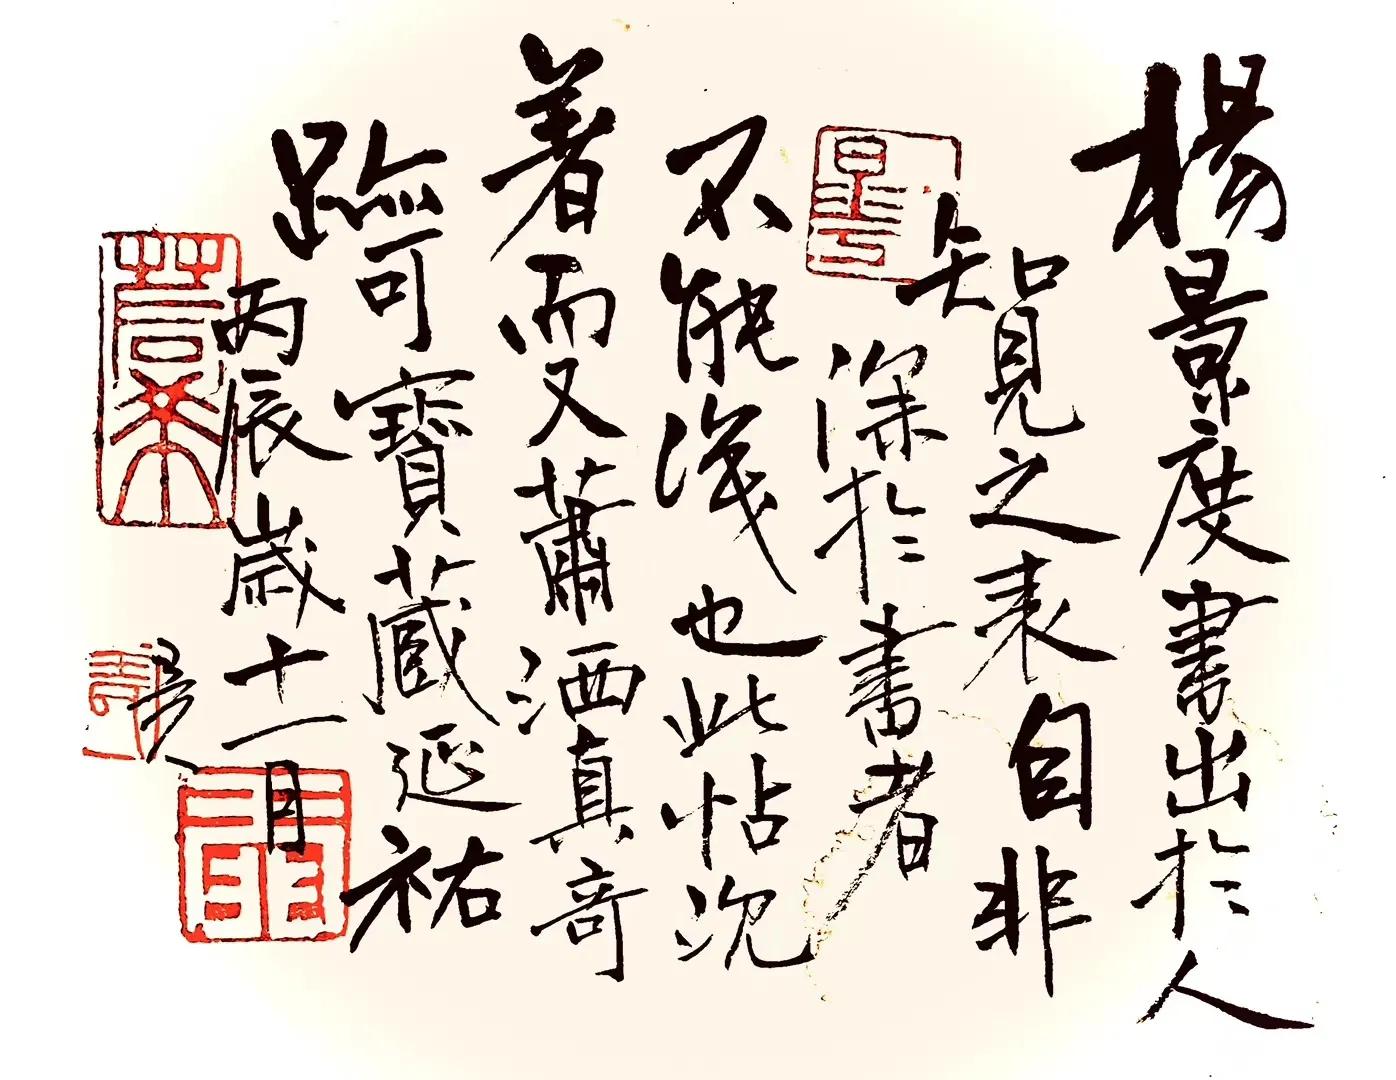 楊景度書出於人
知見之表自非
深於書者
不能識也此帖沉
著而又蕭洒真奇
跡可寶藏延祐
丙辰歲十一月